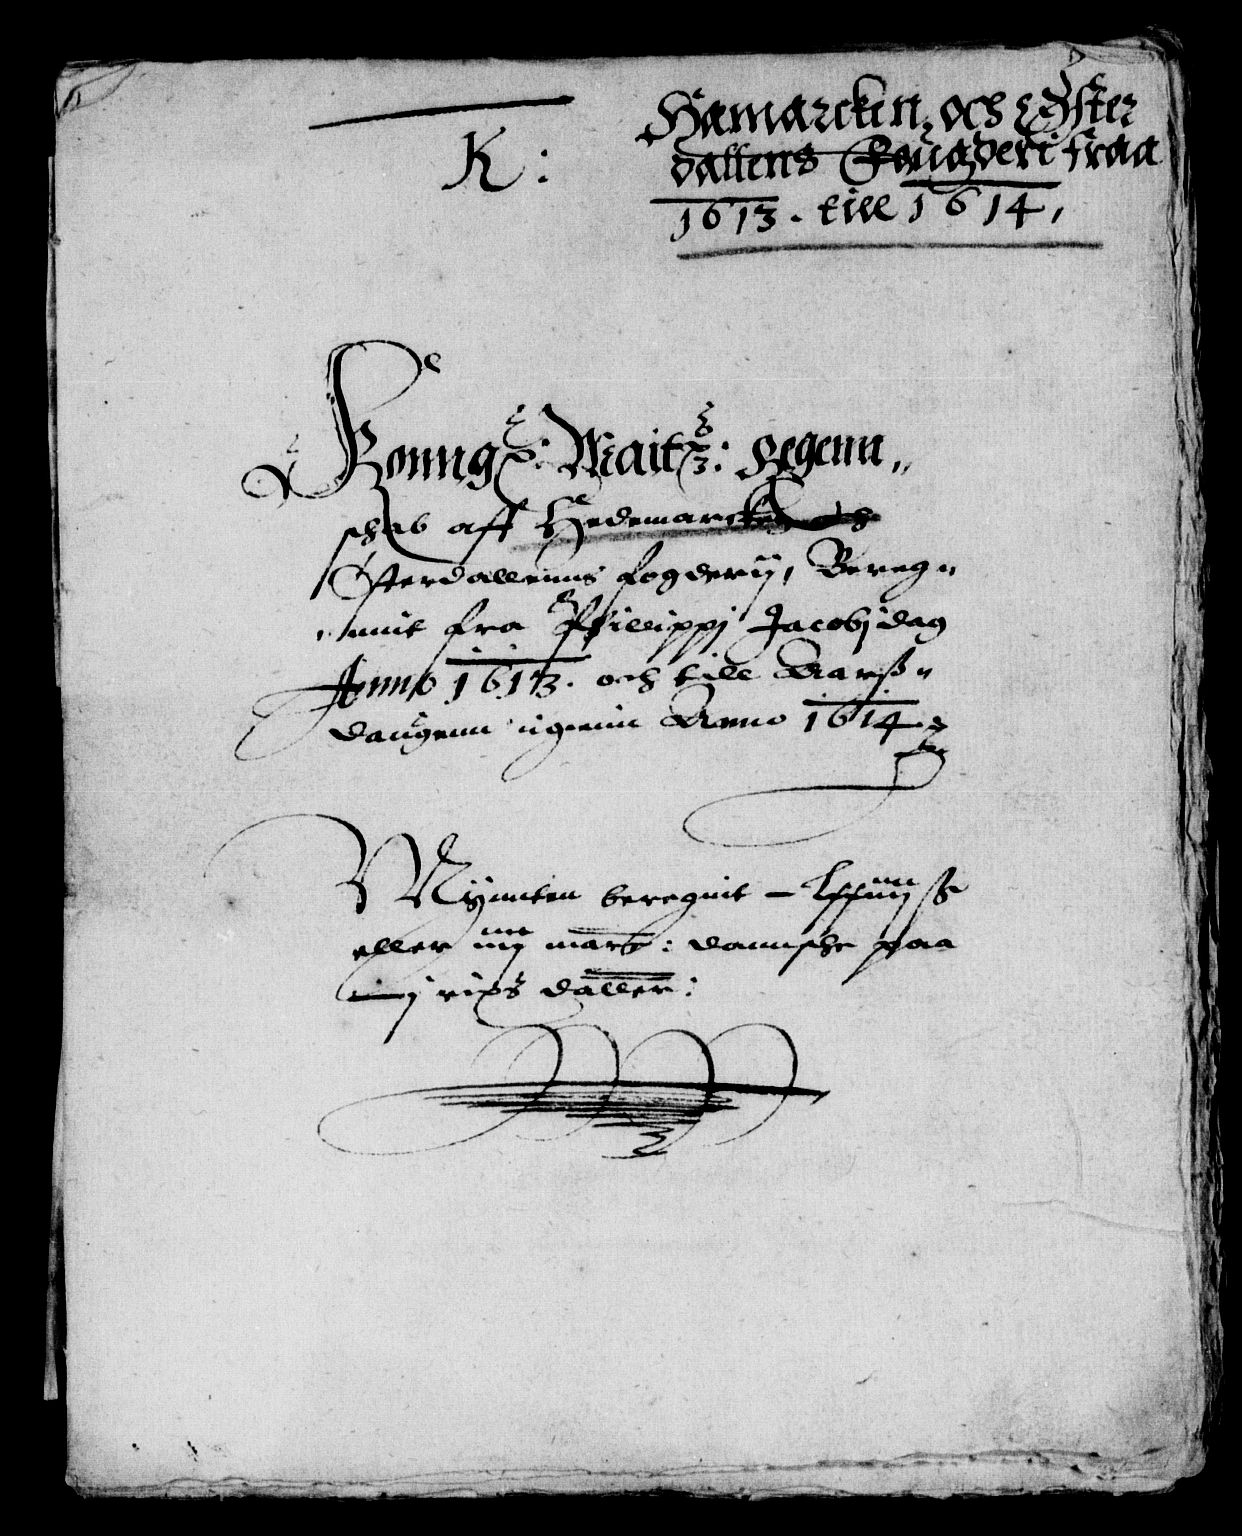 K:
Hamarcken, och Øster
dallens Fougderi fraa
1613. till 1614,
Konng: Maitz: Regenn„
schab aff Hedemarcken och
Østerdallenns fogderij, Bereg„
„nnit fra Philippj Jacobj dag
Anno 1613. och till Aarß„
daugenn igenn Anno 1614
Mynnten beregnit – ß
eller iiij marc: dannsche paa
j rixs daller: